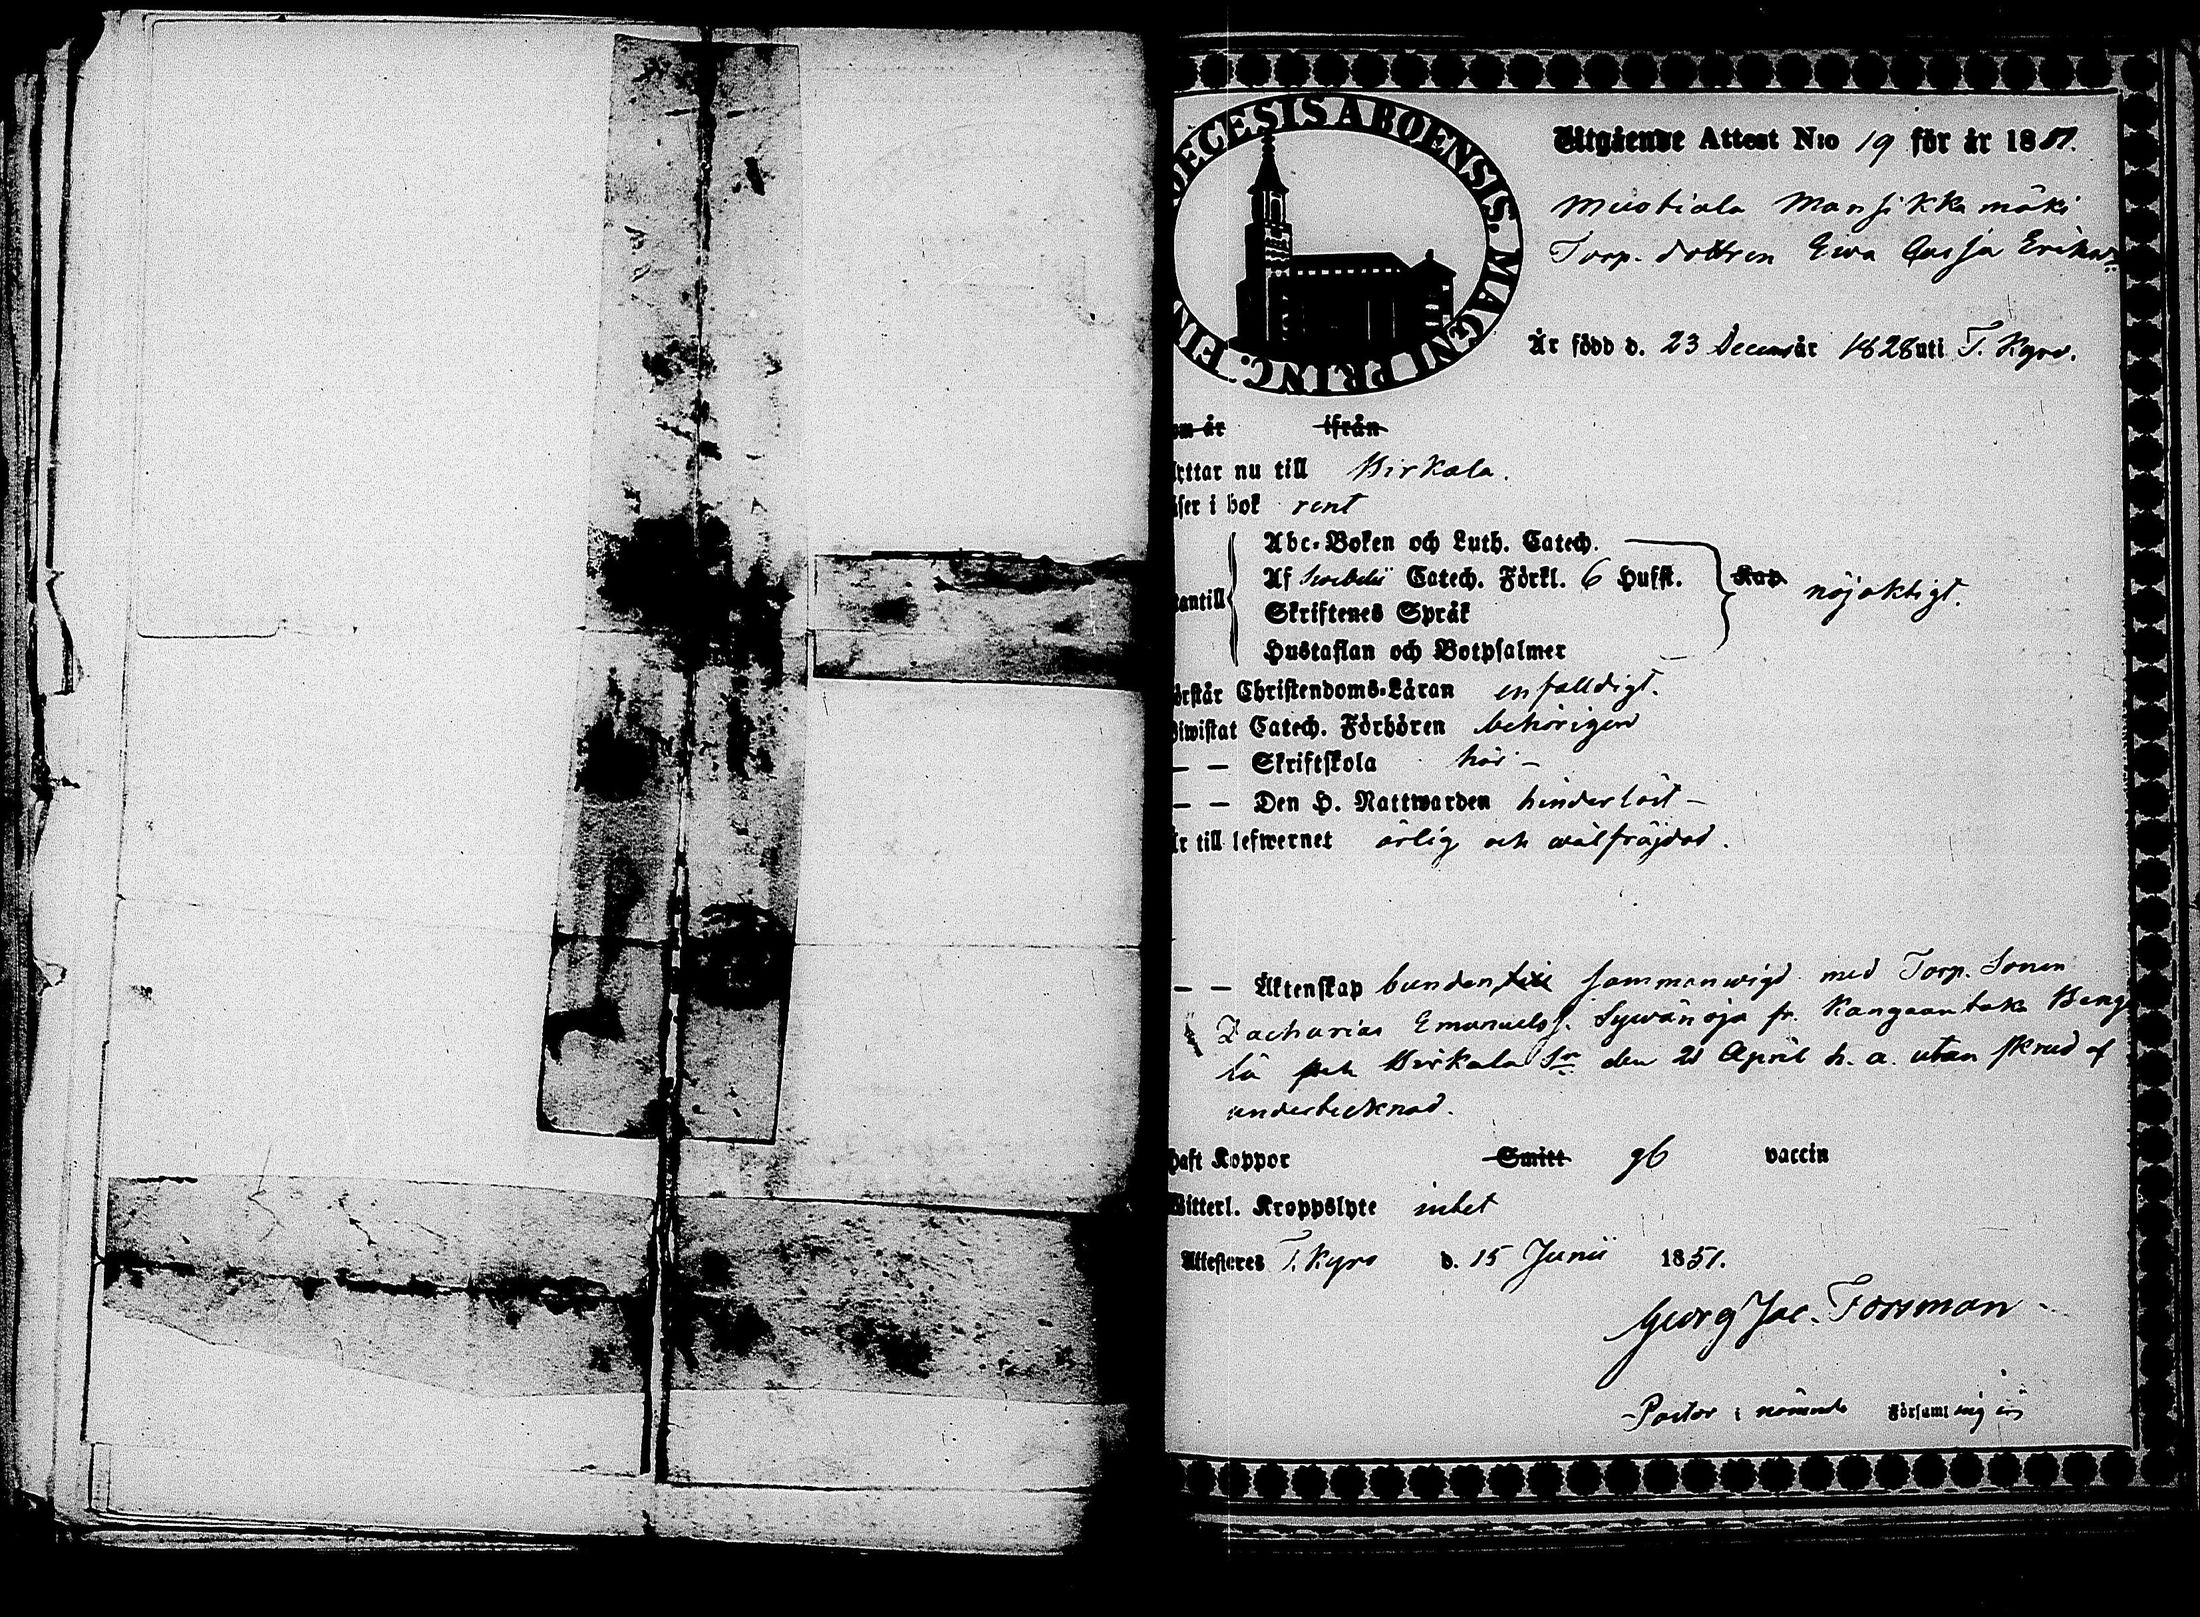 DECESIS ABOENSIS. MAGNI PRINC. FIN
Utgående Attest N:o 19 för år 1851.
Mustiala Mansikkamäki
Torp. dottren Ewa Cajsa Eriksd:r
Är född d. 23 Decem år 1828 uti T. Kyro.
om är ifrån
yttar nu till Birkala.
äser i bok rent
Abc-Boken och Luth. Catech.
Af Svebelii Catech. Förkl. 6 Hufst. Kap nöjaktigt.
tantill
Skriftenes Språk
Hustaflan och Botpsalmer
örstår Christendoms-Läran enfalldigt.
Biwistat Catech. Förhören behörigen
— — Skriftskola hör –
— — Den H. Nattwarden hinderlöst –
Är till lefwernet ärlig och wälfräjdad.
— — Äktenskap bunden, sammanwigd med Torp. Sonen
Zacharias Emanuelss. Sywänoja fr. Kangaantaka Beng
lä och Birkala S:n den 21 April h. a. utan skrud af
undertecknad.
haft Koppor Smitt gb vaccin
Witterl. Kroppslyte intet
Attesteres T. Kyro d. 15 Junii 1851.
Georg Jac. Forsman
Pastor i nämnde Församlingen